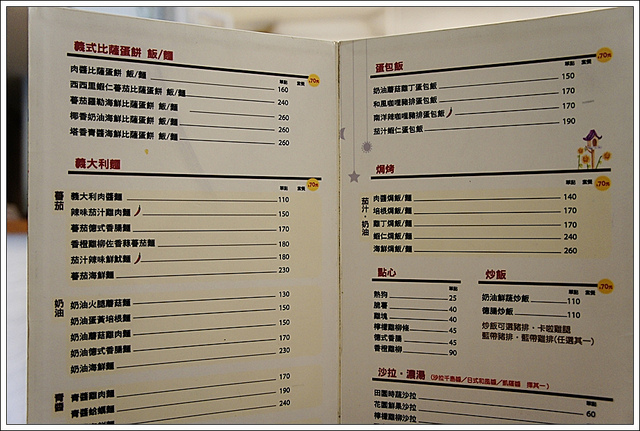 義式比薩蛋餅 飯/麵
單點 套餐 +70元
肉醬比薩蛋餅 飯/麵 160
西西里蝦仁蕃茄比薩蛋餅 飯/麵 240
蕃茄羅勒海鮮比薩蛋餅 飯/麵 260
椰香奶油海鮮比薩蛋餅 飯/麵 260
塔香青醬海鮮比薩蛋餅 飯/麵 260
義大利麵
單點 套餐 +70元
蕃茄
義大利肉醬麵 110
辣味茄汁雞肉麵 150
蕃茄德式香腸麵 170
香橙雞柳佐香辣蕃茄麵 180
茄汁辣味鮮魷麵 180
蕃茄海鮮麵 230
奶油
奶油火腿蘑菇麵 130
奶油蛋黃培根麵 150
奶油蘑菇雞肉麵 150
奶油德式香腸麵 170
奶油海鮮麵 230
青醬
青醬雞肉麵 170
青醬蛤蠣麵 190
240
蛋包飯
單點 套餐 +70元
奶油蘑菇雞丁蛋包飯 150
和風咖哩豬排蛋包飯 170
南洋辣咖哩豬排蛋包飯 170
茄汁蝦仁蛋包飯 190
焗烤
單點 套餐 +70元
茄汁・奶油
肉醬焗飯/麵 140
培根焗飯/麵 170
雞丁焗飯/麵 170
蝦仁焗飯/麵 240
海鮮焗飯/麵 260
點心
單點
熱狗 25
薯薯 40
雞塊 40
檸檬雞柳條 45
德式香腸 45
香橙雞柳 90
炒飯
單點 套餐 +70元
奶油鮮蔬炒飯 110
德腸炒飯 110
炒飯可選豬排、卡啦雞腿
藍帶豬排、藍帶雞排(任選其一)
沙拉・濃湯 (沙拉千島醬/日式和風醬/凱薩醬 擇其一)
單點
田園時蔬沙拉
花園鮮果沙拉 60
檸檬雞柳沙拉